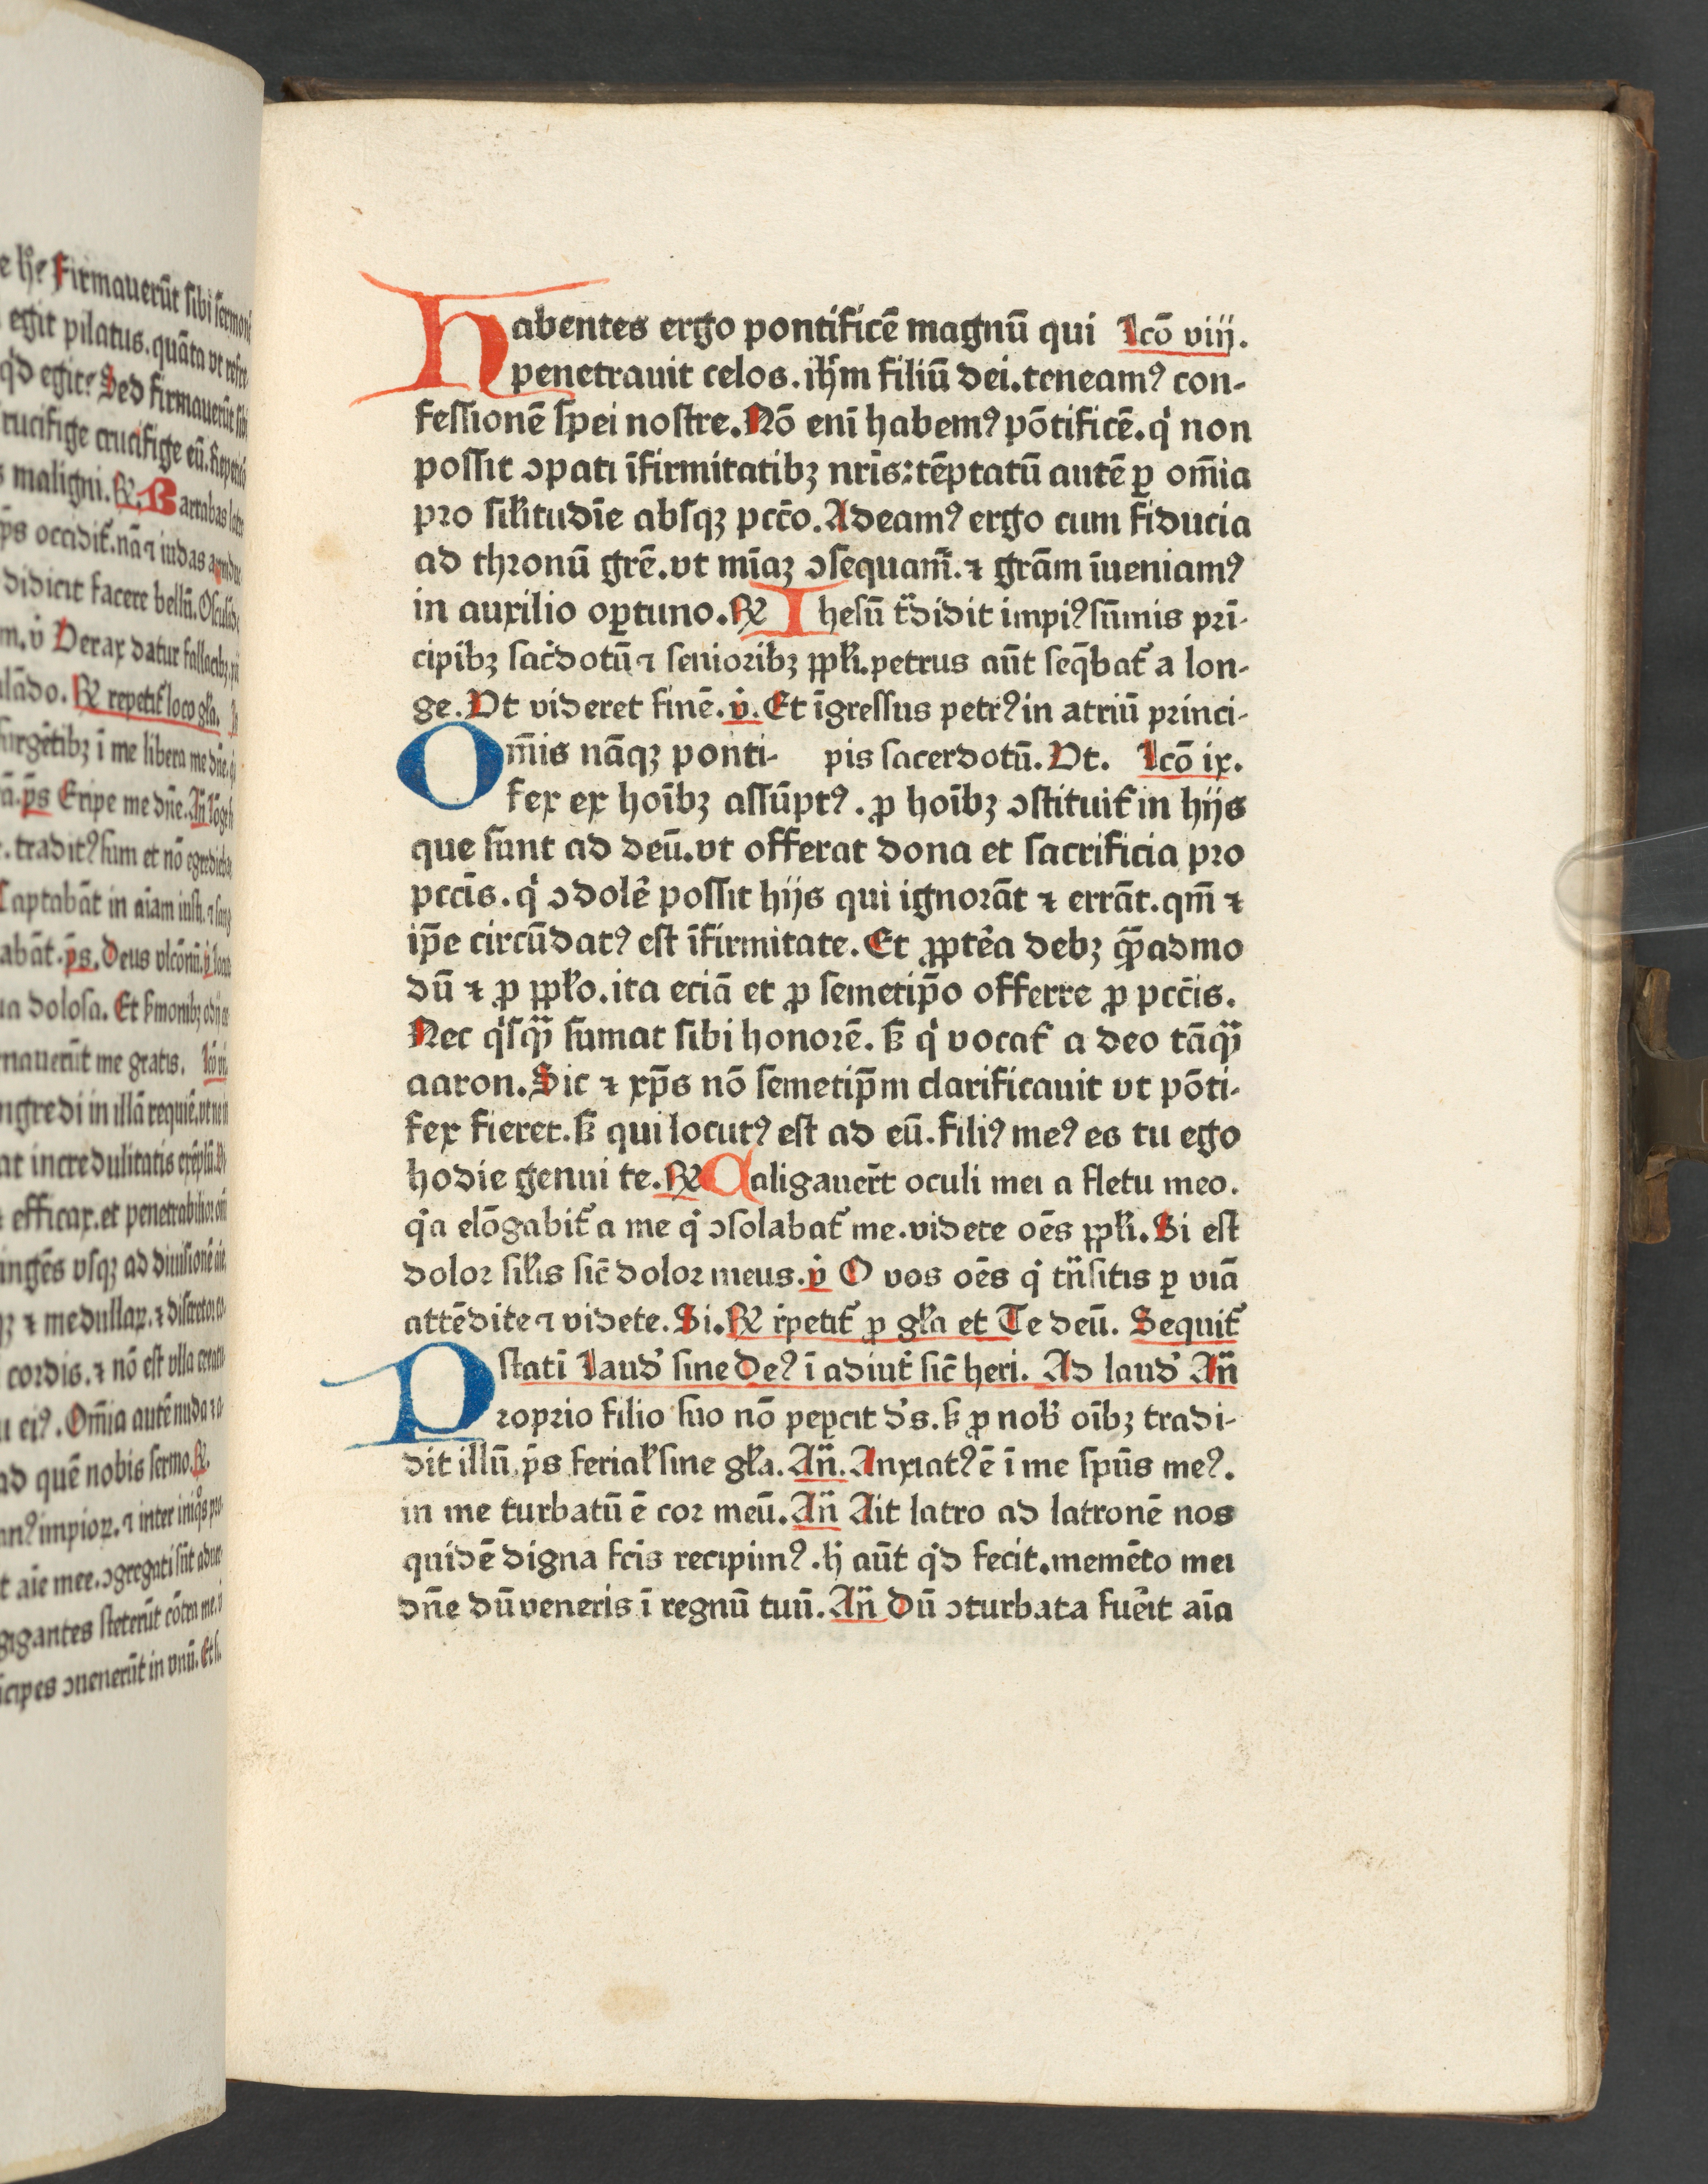 e hᵉ? Firmauerūt sibi sermonē
egit pilatus. quāta vt refre
q̓d egit? Sed firmauerūt sibi
crucifige crucifige eū. Repetēs
maligni. ℟. Barrabas latro
didicit facere bellū. Osculādo
m. v̓ Verax datur fallacibꝫ. pi
lādo. ℟ repetit᷑ loco gl̄a.
surgētibꝫ ī me libera me dn̄e. q̓
p̄s Eripe me dn̄e. Añ lōge
tradit⁹ sum et nō egrediebar
Captabāt in aīam iusti. ⁊ sang
abāt. p̄s. Deus vlcōnū. v̓
dolosa. Et sermonibꝫ odij
rnauerūt me gratis. lcō vij
ngredi in illā requiē. vt ne in
at incredulitatis exēplū.
efficax. et penetrabilior
ingēs vsqꝫ ad diuisionē aīe
⁊ medullaꝝ. ⁊ discretor co-
cordis. ⁊ nō est vlla creatu
ei⁹. Om̄ia autē nuda ⁊ a-
ad quē nobis sermo. ℟.
impioꝝ. ⁊ inter iniq̊s pro-
aīe mee. ↄgregati sūt aduer
gigantes steterūt cōtra me. v̓
cipes ↄuenerūt in vnū. Et s.
Habentes ergo pontificē magnū qui lcō viij.
penetrauit celos. ih̄m filiū dei. teneam⁹ con-
fessionē spei nostre. Nō eni habem⁹ pōtificē. q̓ non
possit ↄpati īfirmitatibꝫ nr̄is: tēptatū autē ꝑ om̄ia
pro sil̄itudīe absqꝫ pcc̄o. Adeam⁹ ergo cum fiducia
ad thronū gr̄e. vt mīaꝫ ↄsequam᷑. ⁊ grām īueniam⁹
in auxilio oꝑtuno. ℟ Ihesū t̃didit impi⁹ sūmis prī-
cipibꝫ sac̓dotū ⁊ senioribꝫ ppl̄i. petrus aūt seq̄bat᷑ a lon-
ge. Vt videret finē. v̓. Et īgressus petr⁹ in atriū princi-
Om̄is nāqꝫ ponti- pis sacerdotū. Vt. lcō ix.
fex ex hoībꝫ assūpt⁹. ꝓ hoībꝫ ↄstituit᷑ in hijs
que sunt ad deū. vt offerat dona et sacrificia pro
pcc̄is. q̓ ↄdolē possit hijs qui ignorāt ⁊ errāt. qm̄ ⁊
ip̄e circūdat⁹ est īfirmitate. Et ꝓpt̓ea debꝫ quē̄admo
dū ⁊ ꝓ ppl̄o. ita eciā et ꝓ semetip̄o offerre ꝓ pcc̄is.
Nec q̓sq̃ sumat sibi honorē. sꝫ q̓ vocat᷑ a deo tāq̃
aaron. Sic ⁊ xp̄s nō semetip̄m clarificauit vt pōti-
fex fieret. sꝫ qui locut⁹ est ad eū. fili⁹ me⁹ es tu ego
hodie genui te. ℟ Caligauer̄t oculi mei a fletu meo.
q̓a elōgabit᷑ a me q̓ ↄsolabat᷑ me. videte oēs ppl̄i. Si est
dolor sil̄is sic̄ dolor meus. v̓ O vos oēs q̓ t̃nsitis ꝑ viā
attēdite ⁊ videte. Si. ℟ r̓petit᷑ ꝓ gl̄a et Te deū. Sequit᷑
statī laud̓ sine de⁹ ī adiut̓ sic̄ heri. Ad laud̓ Añ
Proprio filio suo nō peꝑcit d̓s. sꝫ ꝓ nob̓ oībꝫ tradi-
dit illū. p̄s ferial̄ sine gl̄a. Añ. Anxiat⁹ ē ī me spūs me⁹.
in me turbatū ē cor meū. Añ Ait latro ad latronē nos
quidē digna fc̄is recipim⁹. h̄ aūt q̓d fecit. memēto mei
dn̄e dū veneris ī regnū tuū. Añ Dū ↄturbata fuēit aīa